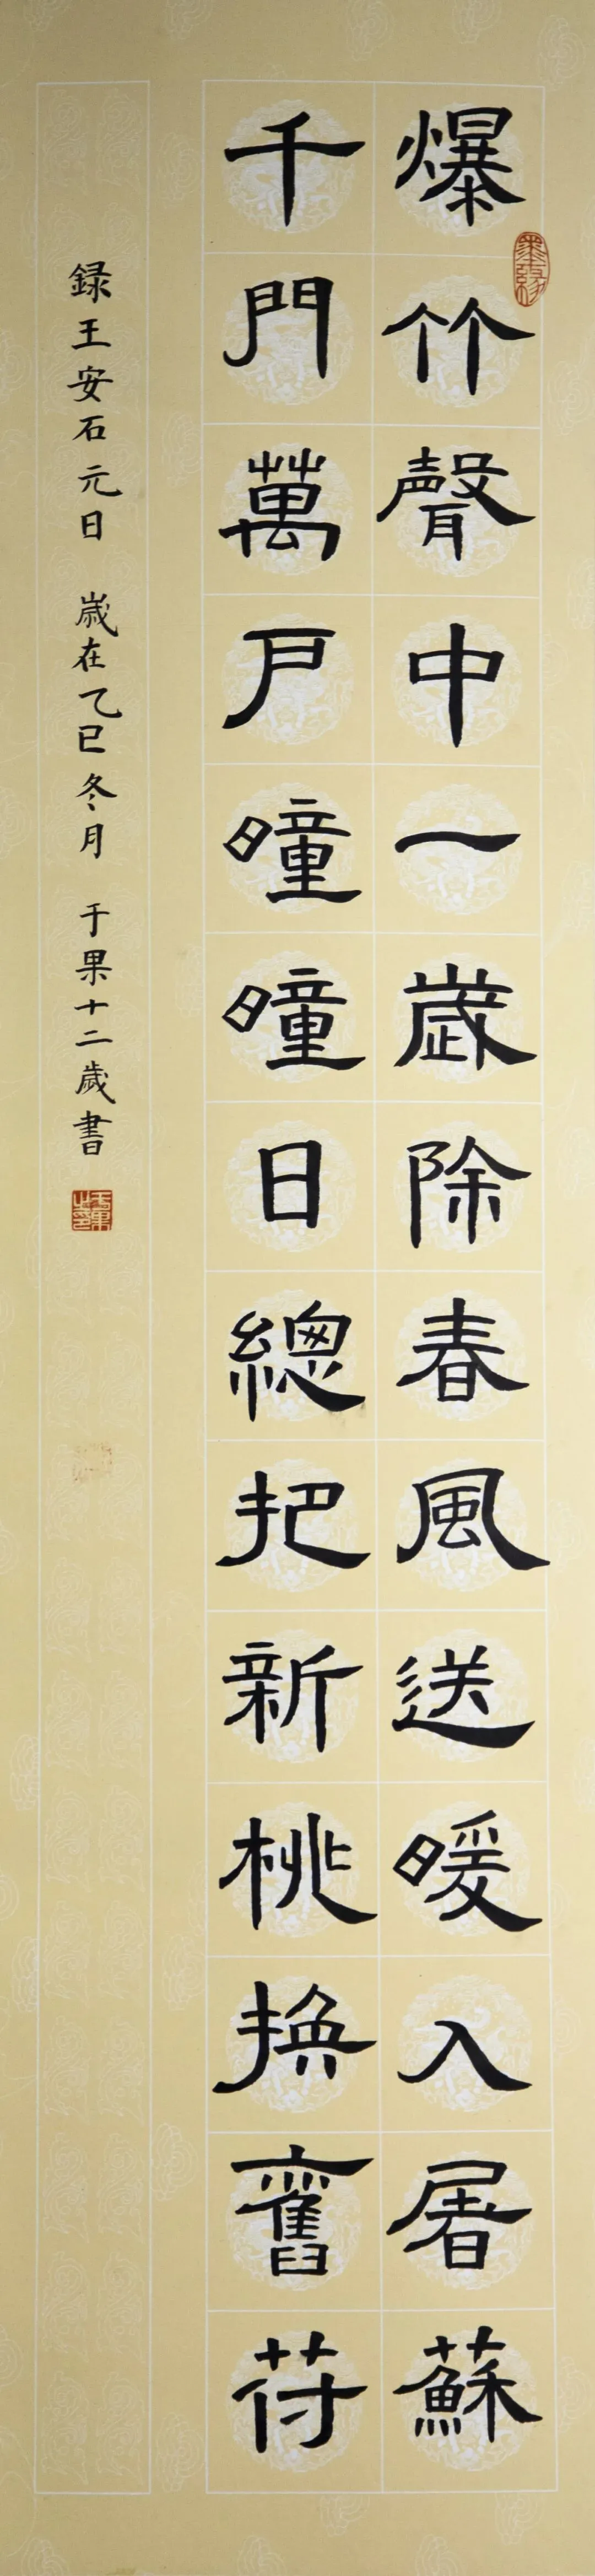 爆竹聲中一歲除春風送暖入屠蘇
千門萬戶曈曈日總把新桃換舊苻
録王安石元日 歳在乙巳冬月 于果十二歲書